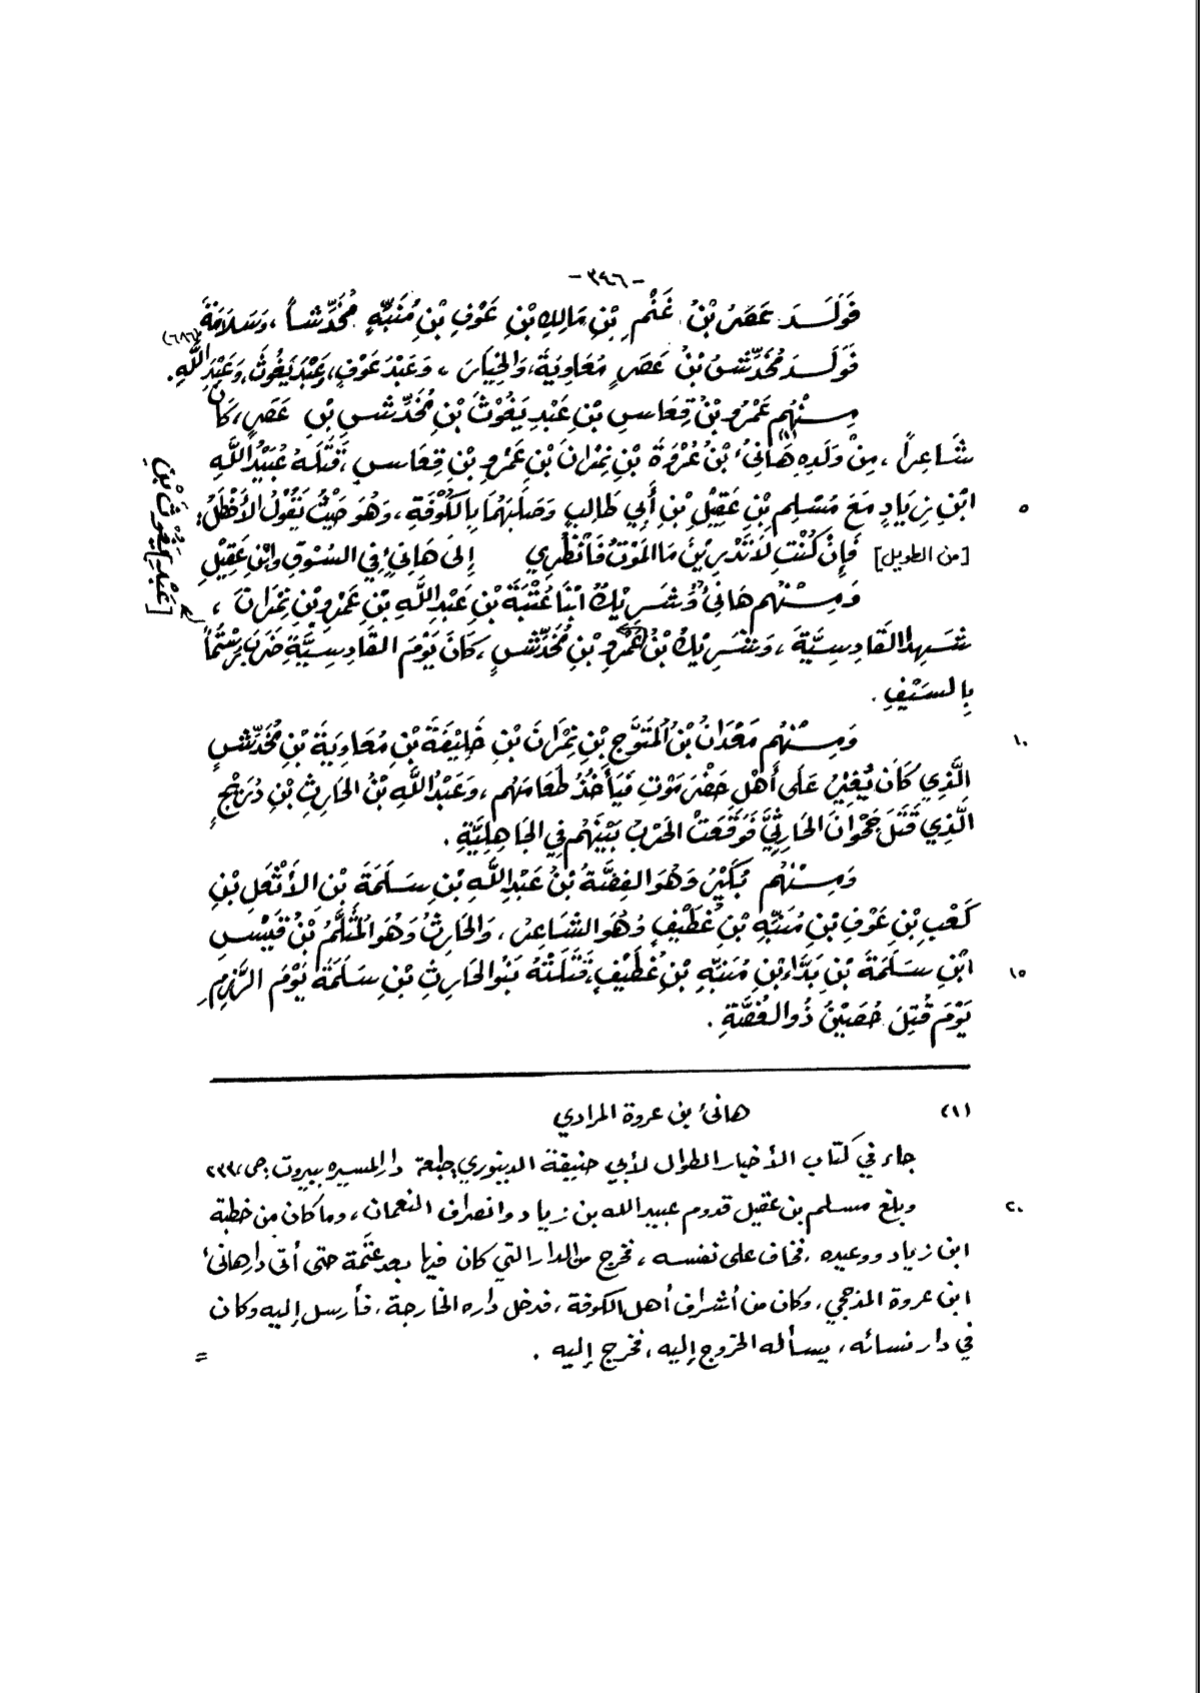 -٣٩٦-
فَوَلَـدَ عَصَرُ بْنُ غَنْمِ بْنِ مَالِكِ بْنِ عَوْفِ بْنِ مُنَبِّهٍ مُخَدِّشاً ، وَسَلَامَةَ
(٦٨٦)
فَوَلَـدَ مُخَدِّشُ بْنُ عَصَرٍ مُعَاوِيَةَ، وَالخِيَارَ ، وَعَبْدَ عَوْفٍ، وَعَبْدَ يَغُوثَ، وَعَبْدَ اللَّهِ.
مِـنْهُم عَمْرُو بْنُ قِعَاسِ بْنِ عَبْدِ يَغُوْثَ بْنِ مُخَدِّشِ بْنِ عَصَرٍ، كَانَ
شَاعِراً ، مِنْ وَلَدِهِ هَانِئُ (١) بْنُ عُرْوَةَ بْنِ نِمْرَانَ بْنِ عَمْرِو بْنِ قِعَاسٍ ، قَتَلَهُ عُبَيْدُ اللَّهِ
٥ ابْنُ زِيَادٍ مَعَ مُسْلِمِ بْنِ عَقِيْلِ بْنِ أَبِي طَالِبٍ وَصَلَبَهُمَا بِالكُوْفَةِ ، وَهُوَ حَيْثُ يَقُوْلُ الأَخْطَلُ:
[من الطويل] فَإِنْ كُنْتِ لَا تَدْرِيْنَ مَا المَوْتُ فَانْظُرِي إِلَى هَانِئٍ فِي السُّوْقِ وابْنِ عَقِيْلِ
وَمِـنْهُم هَانِئُ وُشَرِيْكُ ابْنَا عُتْبَةَ بْنِ عَبْدِ اللَّهِ بْنِ عَمْرِو بْنِ نِمْرَانَ ،
شَهِدَا القَادِسِيَّةَ ، وَشَرِيْكُ بْنُ عَمْرِو بْنِ مُخَدِّشٍ ، كَانَ يَوْمَ القَادِسِيَّةِ ضَرَبَ رُسْتُماً
[عَبْدِ يَغُوثَ بْنِ]
بِالسَّيْفِ .
١٠ وَمِـنْهُم مَعْدَانُ بْنُ المُتَوَّجِ بْنِ نِمْرَانَ بْنِ خَلِيْفَةَ بْنِ مُعَاوِيَةَ بْنِ مُخَدِّشٍ
الَّذِي كَانَ يُغِيْرُ عَلَى أَهْلِ حَضْرَمَوْتِ فَيَأْخُذُ طَعَامَهُم ، وَعَبْدُ اللَّهِ بْنُ الحَارِثِ بْنِ دُرَيْجٍ
الَّذِي قَتَلَ جَحْوَانَ الحَارِثِيَّ فَوَقَعَتْ الحَرْبُ بَيْنَهُم فِي الجَاهِلِيَّةِ .
وَمِـنْهُم بُكَيْرُ وَهُوَ الفِضَّةُ بْنُ عَبْدِ اللَّهِ بْنِ سَلَمَةَ بْنِ الأَثْعَلِ بْنِ
كَعْبِ بْنِ عَوْفِ بْنِ مُنَبِّهِ بْنِ غُطَيْفٍ وَهُوَ الشَّاعِرُ ، وَالحَارِثُ وَهُوَ المُثَلَّمُ بْنُ قَيْسِ
١٥ ابْنِ سَلَمَةَ بْنِ بَدَّاءَ بْنِ مُنَبِّهِ بْنِ غُطَيْفٍ، قَتَلَتْهُ بَنُو الحَارِثِ بْنِ سَلَمَةَ يَوْمَ الرَّزْمِ
يَوْمَ قُتِلَ حُصَيْنُ ذُو الغُصَّةِ .
(١) هانئ بن عروة المرادي
جاء في كتاب الأخبار الطوال لأبي حنيفة الدينوري طبعة دار المسيره ببيروت: ص ٢٣٣
٢٠ وبلغ مسلم بن عقيل قدوم عبيد الله بن زياد وانصراف النعمان ، وما كان من خطبة
ابن زياد ووعيده ، فخاف على نفسه ، فخرج من الدار التي كان فيها بعد عتَمة حتى أتى دار هانئ
ابن عروة المذحجي، وكان من أشراف أهل الكوفة ، فدخل داره الخارجة ، فأرسل إليه وكان
في دار نسائه ، يسأله الخروج إليه ، فخرج إليه .
=